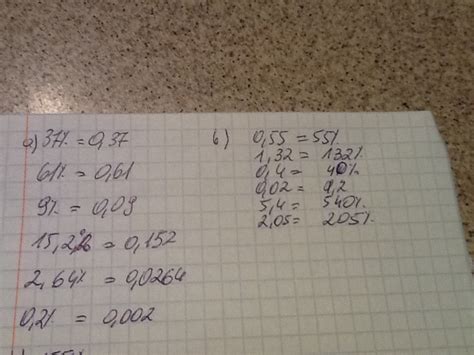 а) 37% = 0,37
61% = 0,61
9% = 0,09
15,2% = 0,152
2,64% = 0,0264
0,2% = 0,002
б) 0,55 = 55%
1,32 = 132%
0,4 = 40%
0,02 = 0,2
5,4 = 540%
2,05 = 205%